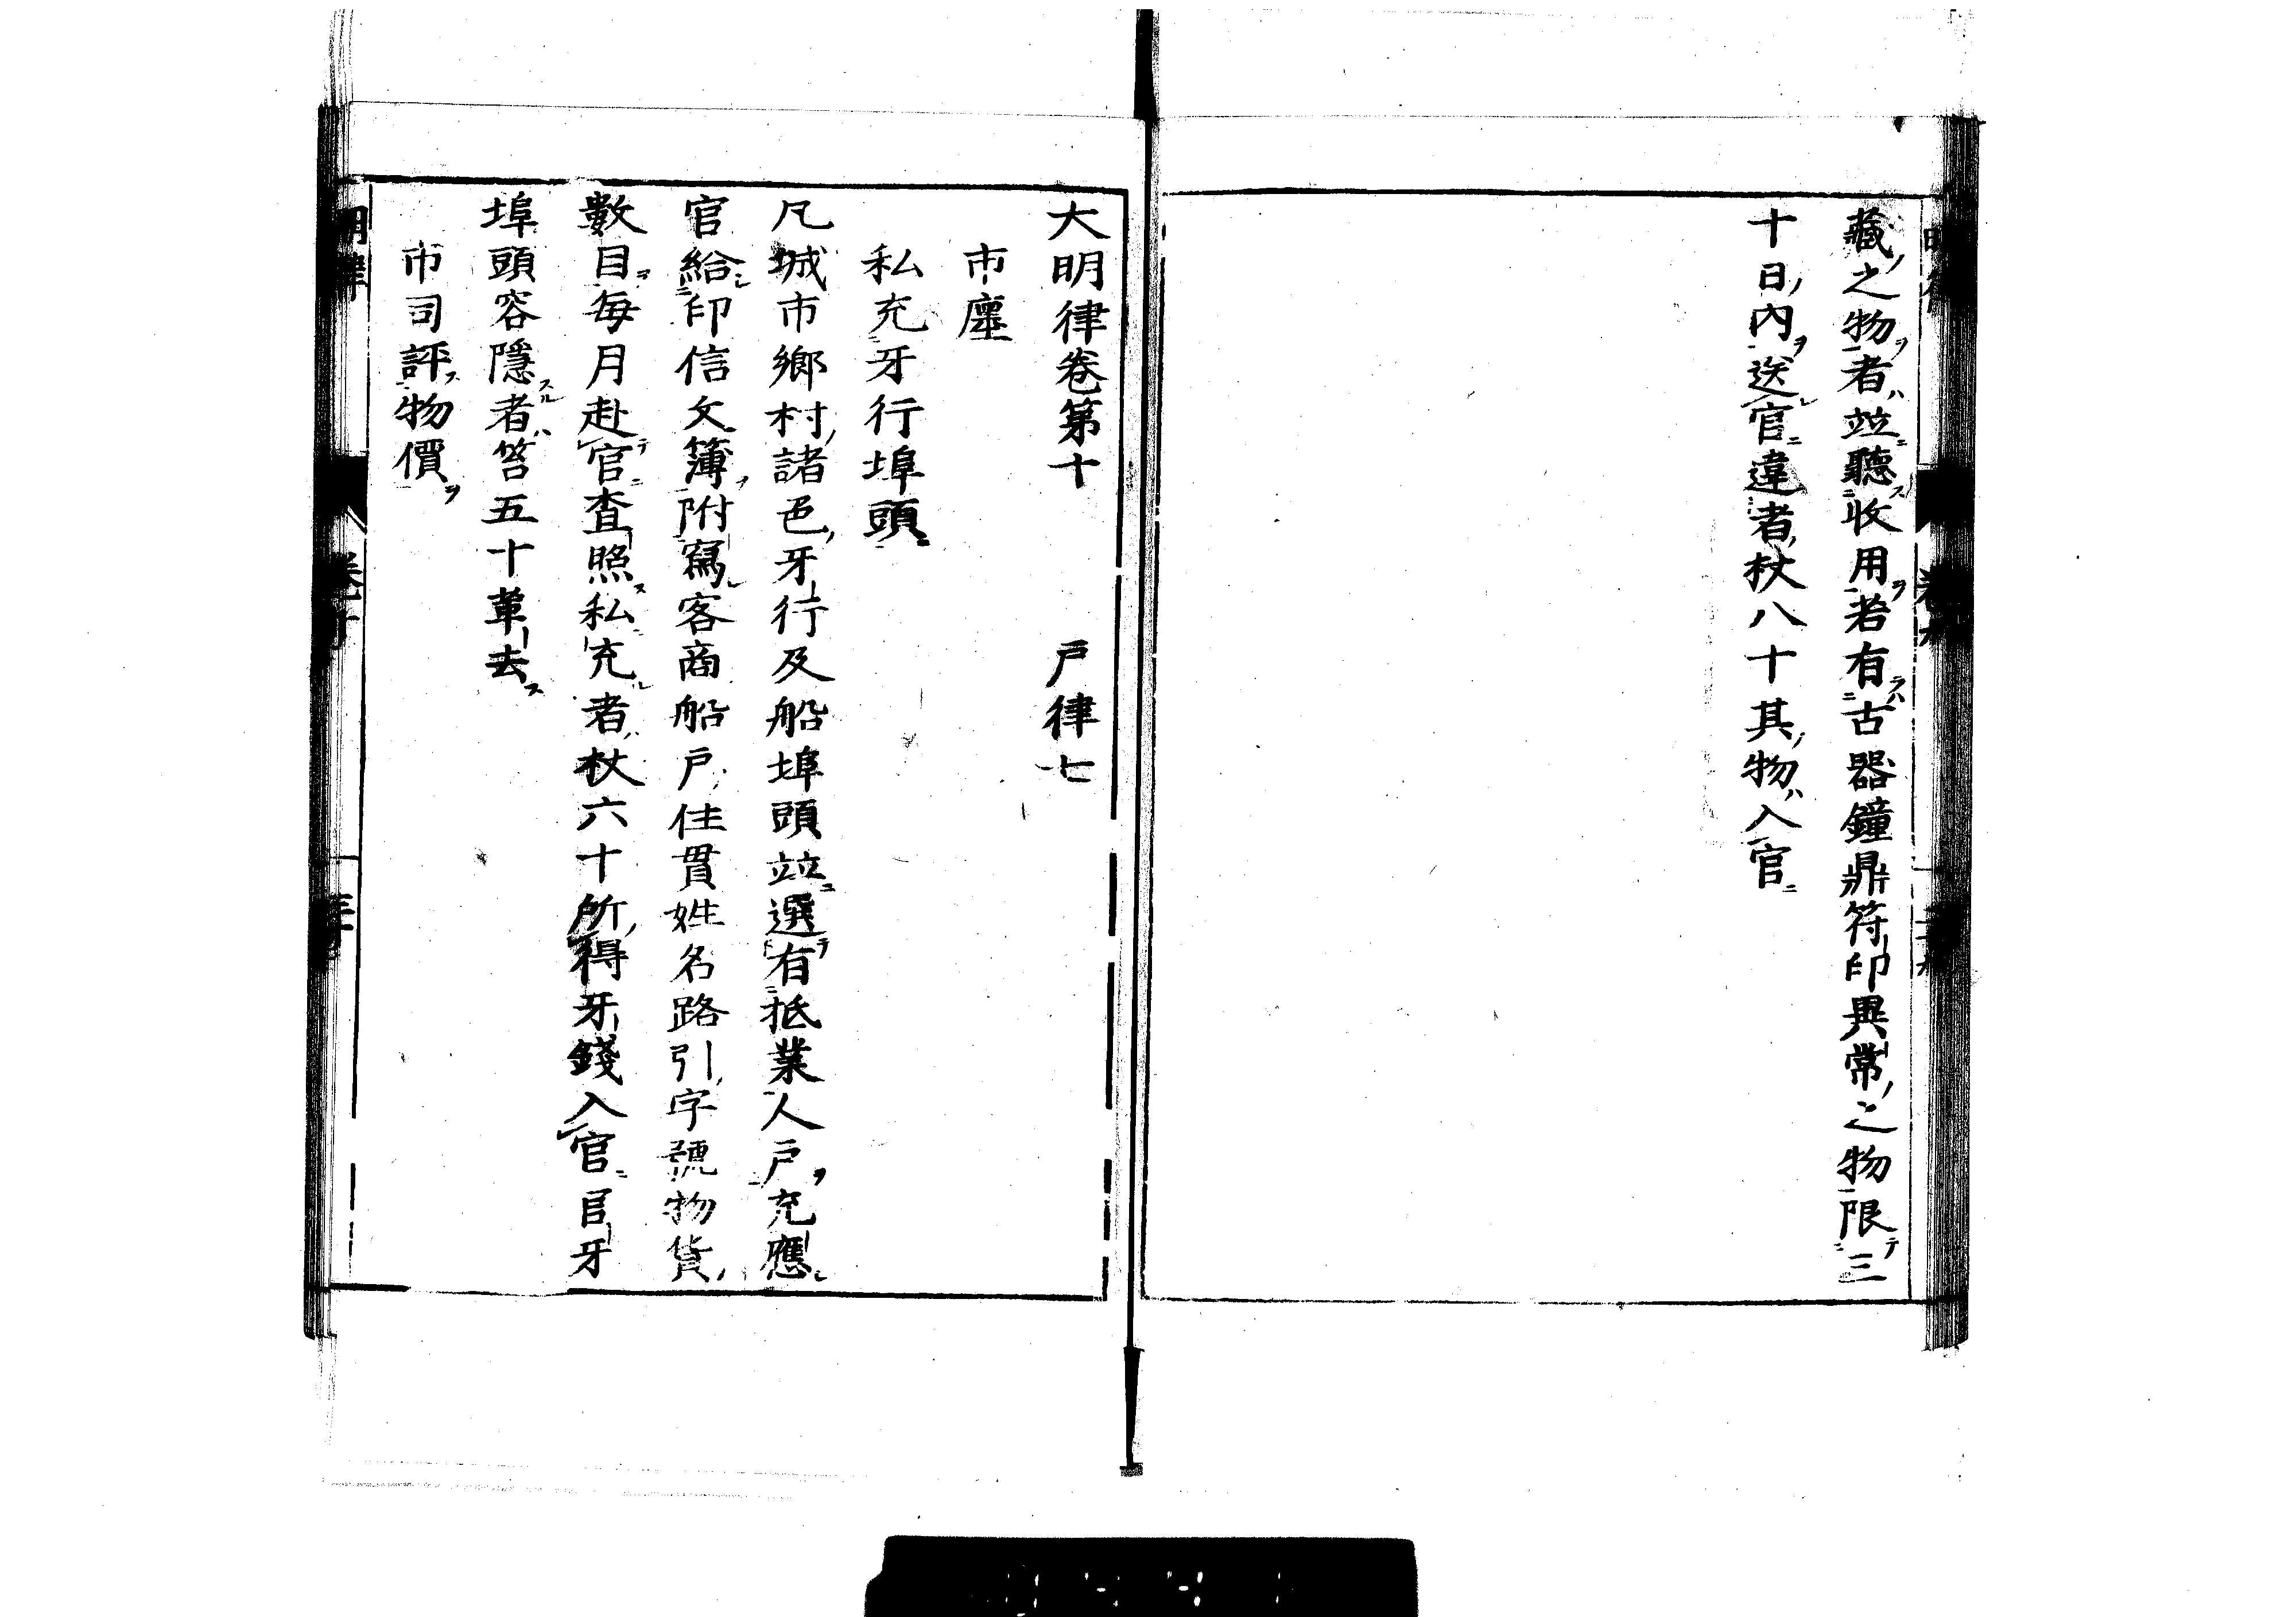 藏之物者竝聽收用若有古器鐘鼎符印異常之物限三
十日內送官違者杖八十其物入官
大明律卷第十　戶律七
市廛
私充牙行埠頭
凡城市鄉村諸色牙行及船埠頭竝選有抵業人戶充應
官給印信文簿附寫客商船戶住貫姓名路引字號物貨
數目每月赴官查照私充者杖六十所得牙錢入官官牙
埠頭容隱者笞五十革去
市司評物價